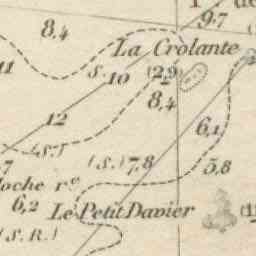 9,7
8,4
La Crolante
11
S. 10
(2,9)
8,4
12
6,1
(S.)
(S.) 7,8
5,8
7
loche re
6,2
Le Petit Davier
(S.R.)